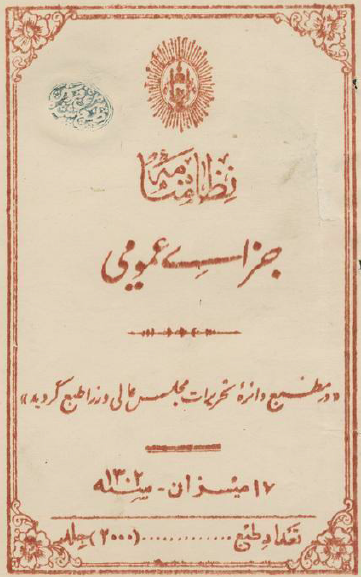 نظامنامه
جزای عمومی
«در مطبع دائرهٔ تحریرات مجلس عالی وزرا طبع گردید»
۱۷ میزان - سنه ۱۳۰۲
تعداد طبع ............ (۲۰۰۰) جلد